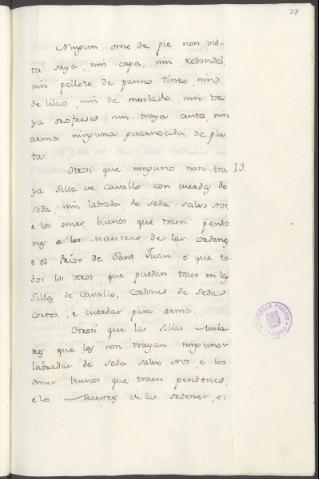 78
Ningun ome de pie non vis-
ta saya, nin capa, nin redondel,
nin pellote de panno tinto, nin
de lilao, nin de mesclado, nin tra
ya orofreses nin traya cinta, nin
arma ninguna guarnecida de pla
ta.
Otrosi que ninguno non tra 13.
ya Silla de Cavallo con cuerdas de
seda nin labrada de seda salvo nos
e los omes buenos que traen pendo
nes e los Maestres de las ordenes
e el Prior de Sant Juan, e que to-
dos los otros, que puedan traer en las
Sillas de Cavallo, Cordones de seda
cortos, e cuerdas para arma.
Otrosi que las Sillas mula
res que las non trayan ningunos
labradas de seda salvo nos e los
omes buenos que traen pendones,
e los Maestres de las ordenes, e